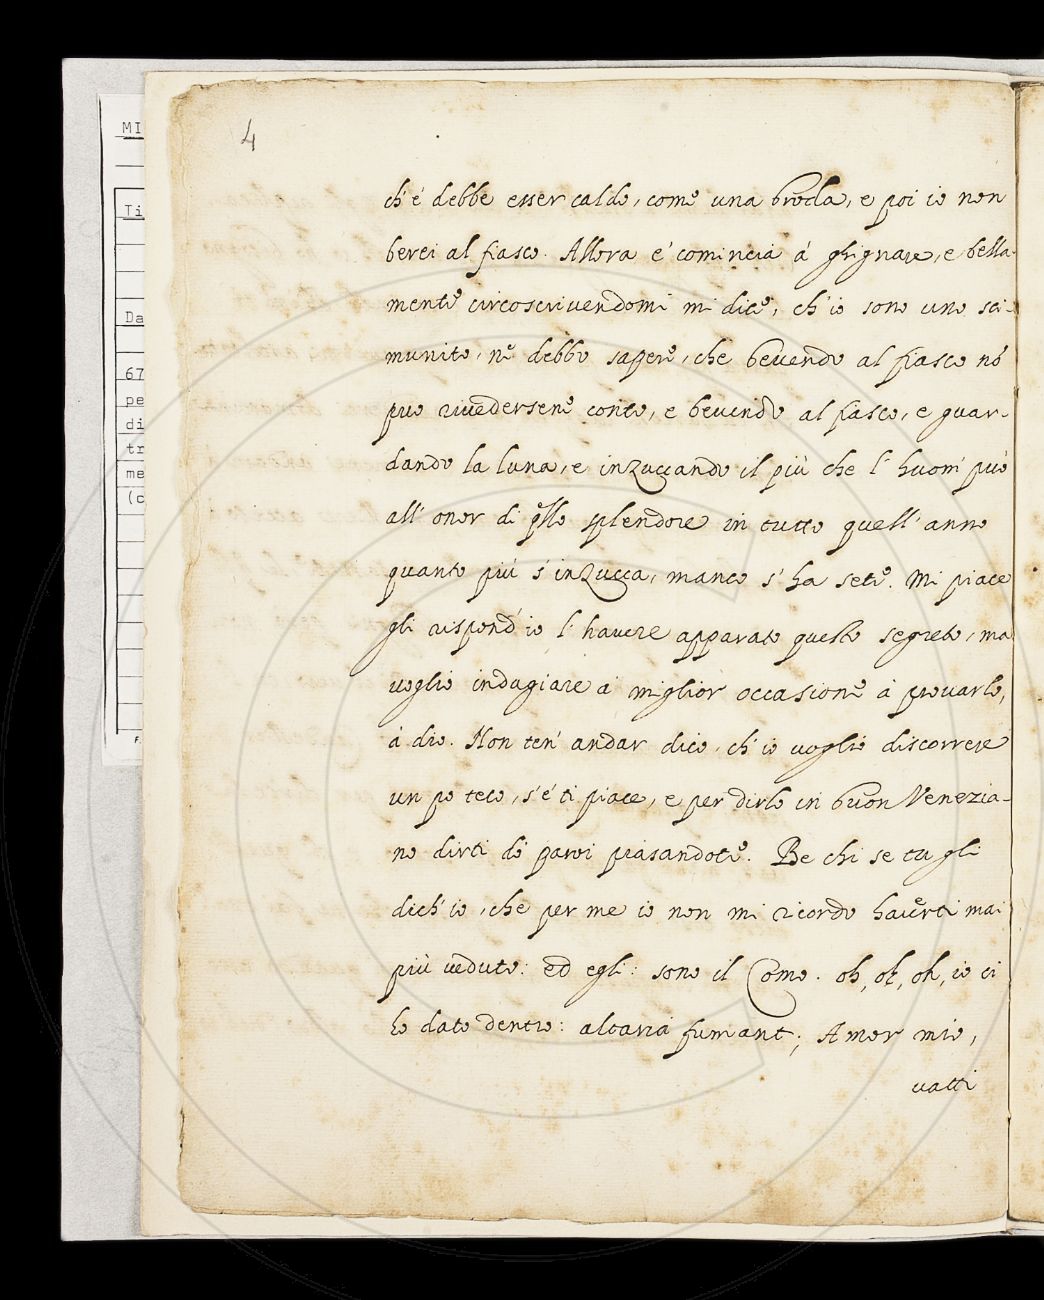 4
MI
Ti
Da
67
pe
di
tr
me
(c
F.
ch'é debbe esser caldo, come una broda, e poi io non
berei al fiasco. Allora e' comincia á ghignare, e bella-
mente circoscrivendomi mi dice, ch'io sono uno sci-
munito, ne debbo sapere, che bevendo al fiasco nó
puo rivedersene conto, e bevendo al fiasco, e guar-
dando la luna, e inzuccando il più che l'huom può
all'onor di qllo splendore in tutto quell'anno
quanto più s'inzucca, manco s'ha sete. Mi piace
gli rispond'io l'havere apparato questo segreto, ma
voglio indugiare a miglior occasione à provarlo,
à dio. Non ten'andar dice, ch'io voglio discorrere
un po teco, s'é ti piace, e per dirlo in buon Venezia-
no dirti dó paroi piasandote. Be chi se tu gli
dich'io, che per me io non mi ricordo haverti mai
più veduto: ed egli: sono il Como. oh, oh, oh, io ci
ho dato dentro: altaria fumant; Amor mio,
vatti